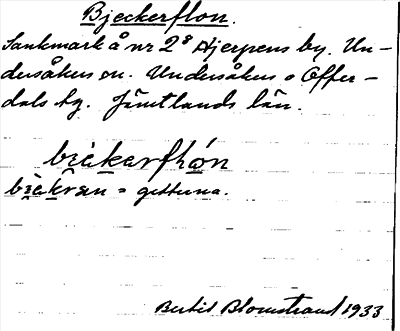 Bjeckerflon.
Sankmark å nr 2⁸ Hjerpens by. Un-
dersåkers sn. Undersåkers o Offer-
dals tg. Jämtlands län.
biekarfhón
biekran = getterna.
Bertil Blomstrand 1933